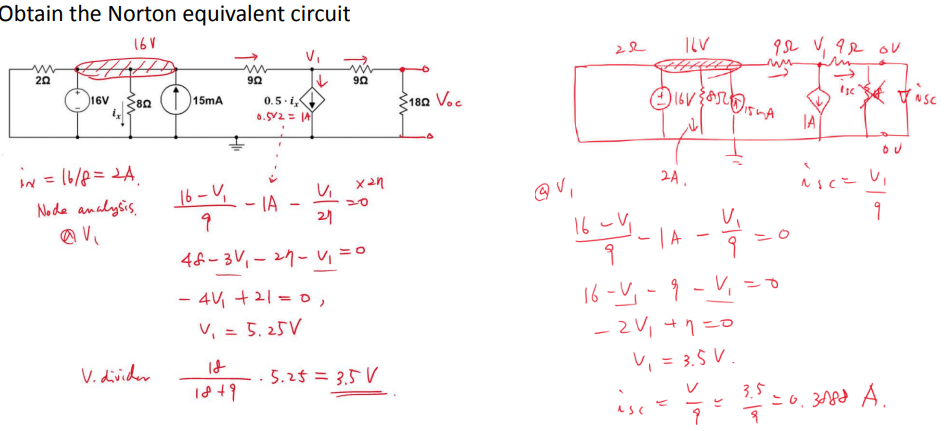 Obtain the Norton equivalent circuit
16V
2Ω
16V
8Ω
iₓ
15mA
9Ω
V₁
9Ω
0.5·iₓ
0.5√2 = 1A
18Ω Voc
ix = 16/8 = 2A.
Node analysis.
@ V₁
(16 - V₁)/9 - 1A - V₁/27 = 0 × 27
48 - 3V₁ - 27 - V₁ = 0
- 4V₁ + 21 = 0,
V₁ = 5.25V
V. divider 18/(18+9) · 5.25 = 3.5 V
2Ω
16V
9Ω V₁ 9Ω 0V
16V 8Ω 15mA
1A
isc
isc
0V
2A.
isc = V₁/9
@ V₁
(16 - V₁)/9 - 1A - V₁/9 = 0
16 - V₁ - 9 - V₁ = 0
- 2V₁ + 7 = 0
V₁ = 3.5 V.
isc = V/9 = 3.5/9 = 0.3888 A.